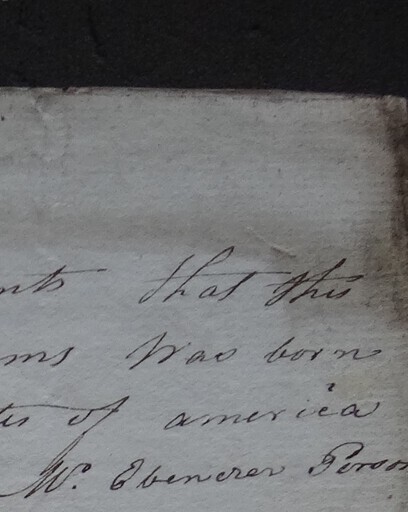 nts that this
ms Was born
tes of america
Mr. Ebenezer